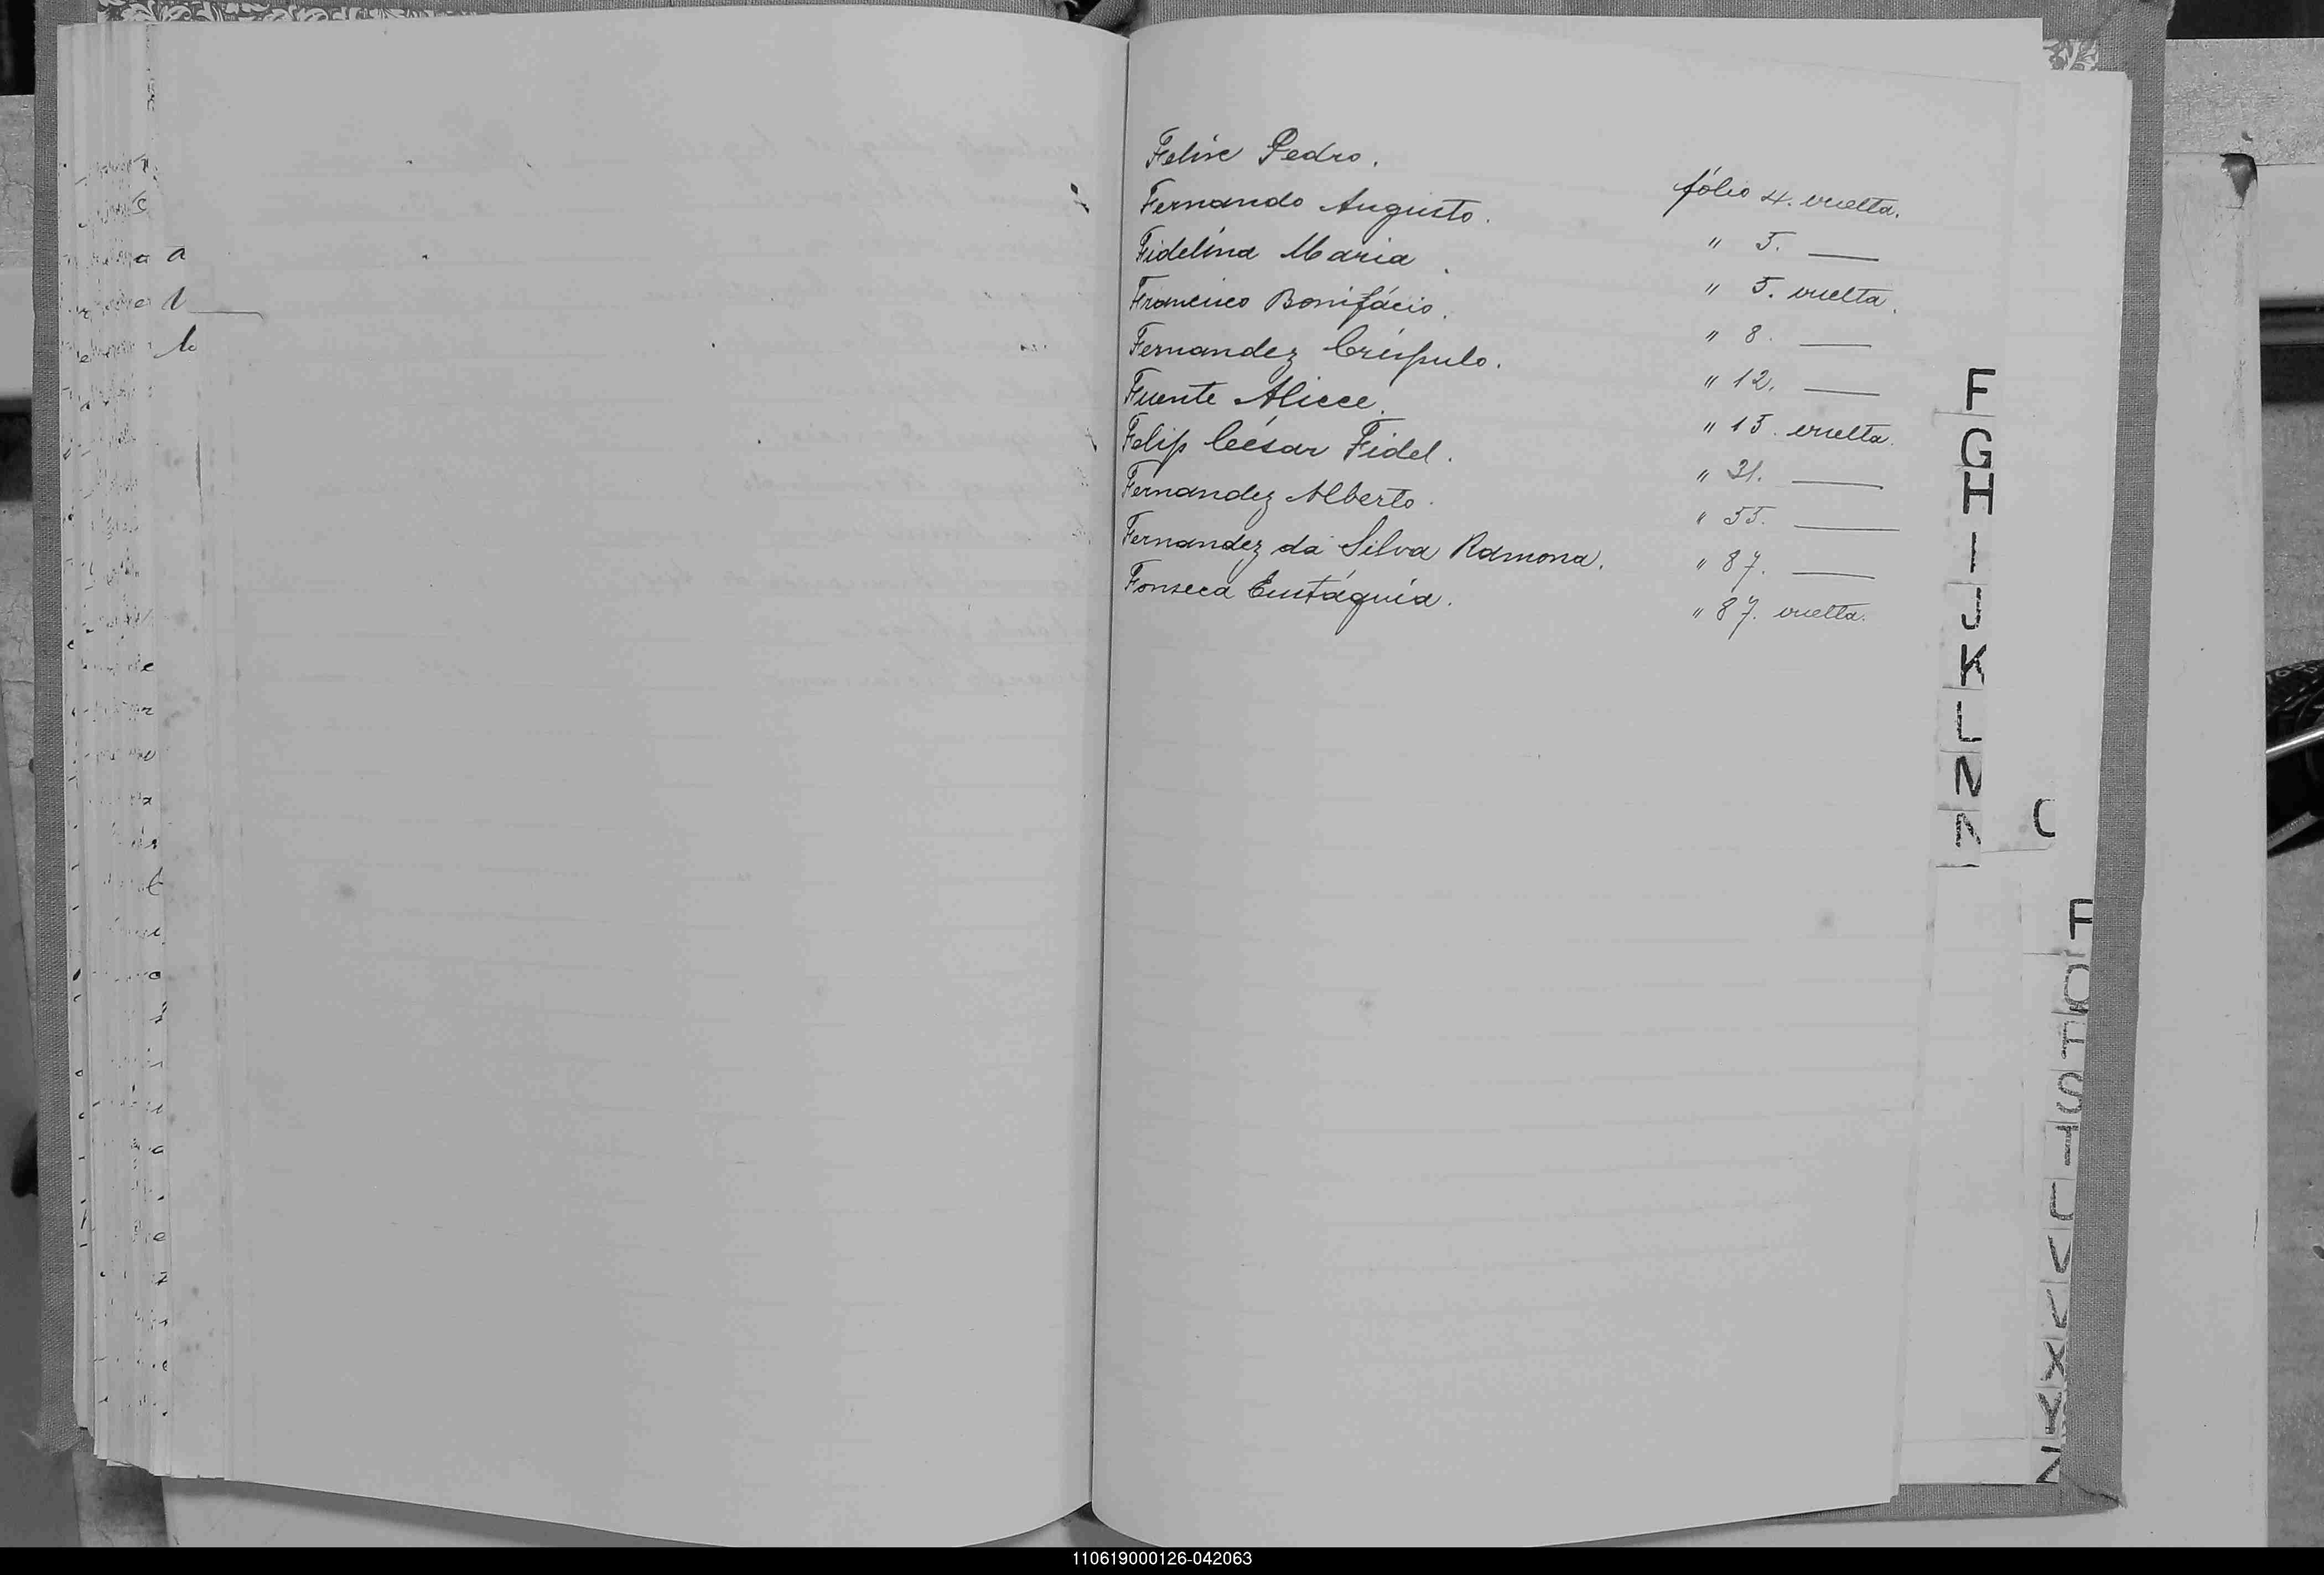 Felix Pedro. fólio 4. vuelta.
Fernando Augusto. " 5. ——
Fidelina Maria. " 5. vuelta.
Francisco Bonifácio. " 8. ——
Fernandez Críspulo. " 12. ——
Fuente Alicce. " 15. vuelta.
Felip César Fidel. " 31. ——
Fernandez Alberto. " 55. ——
Fernandez da Silva Ramona. " 87. ——
Fonseca Eustáquia. " 87. vuelta.
F
G
H
I
J
K
L
110619000126-042063